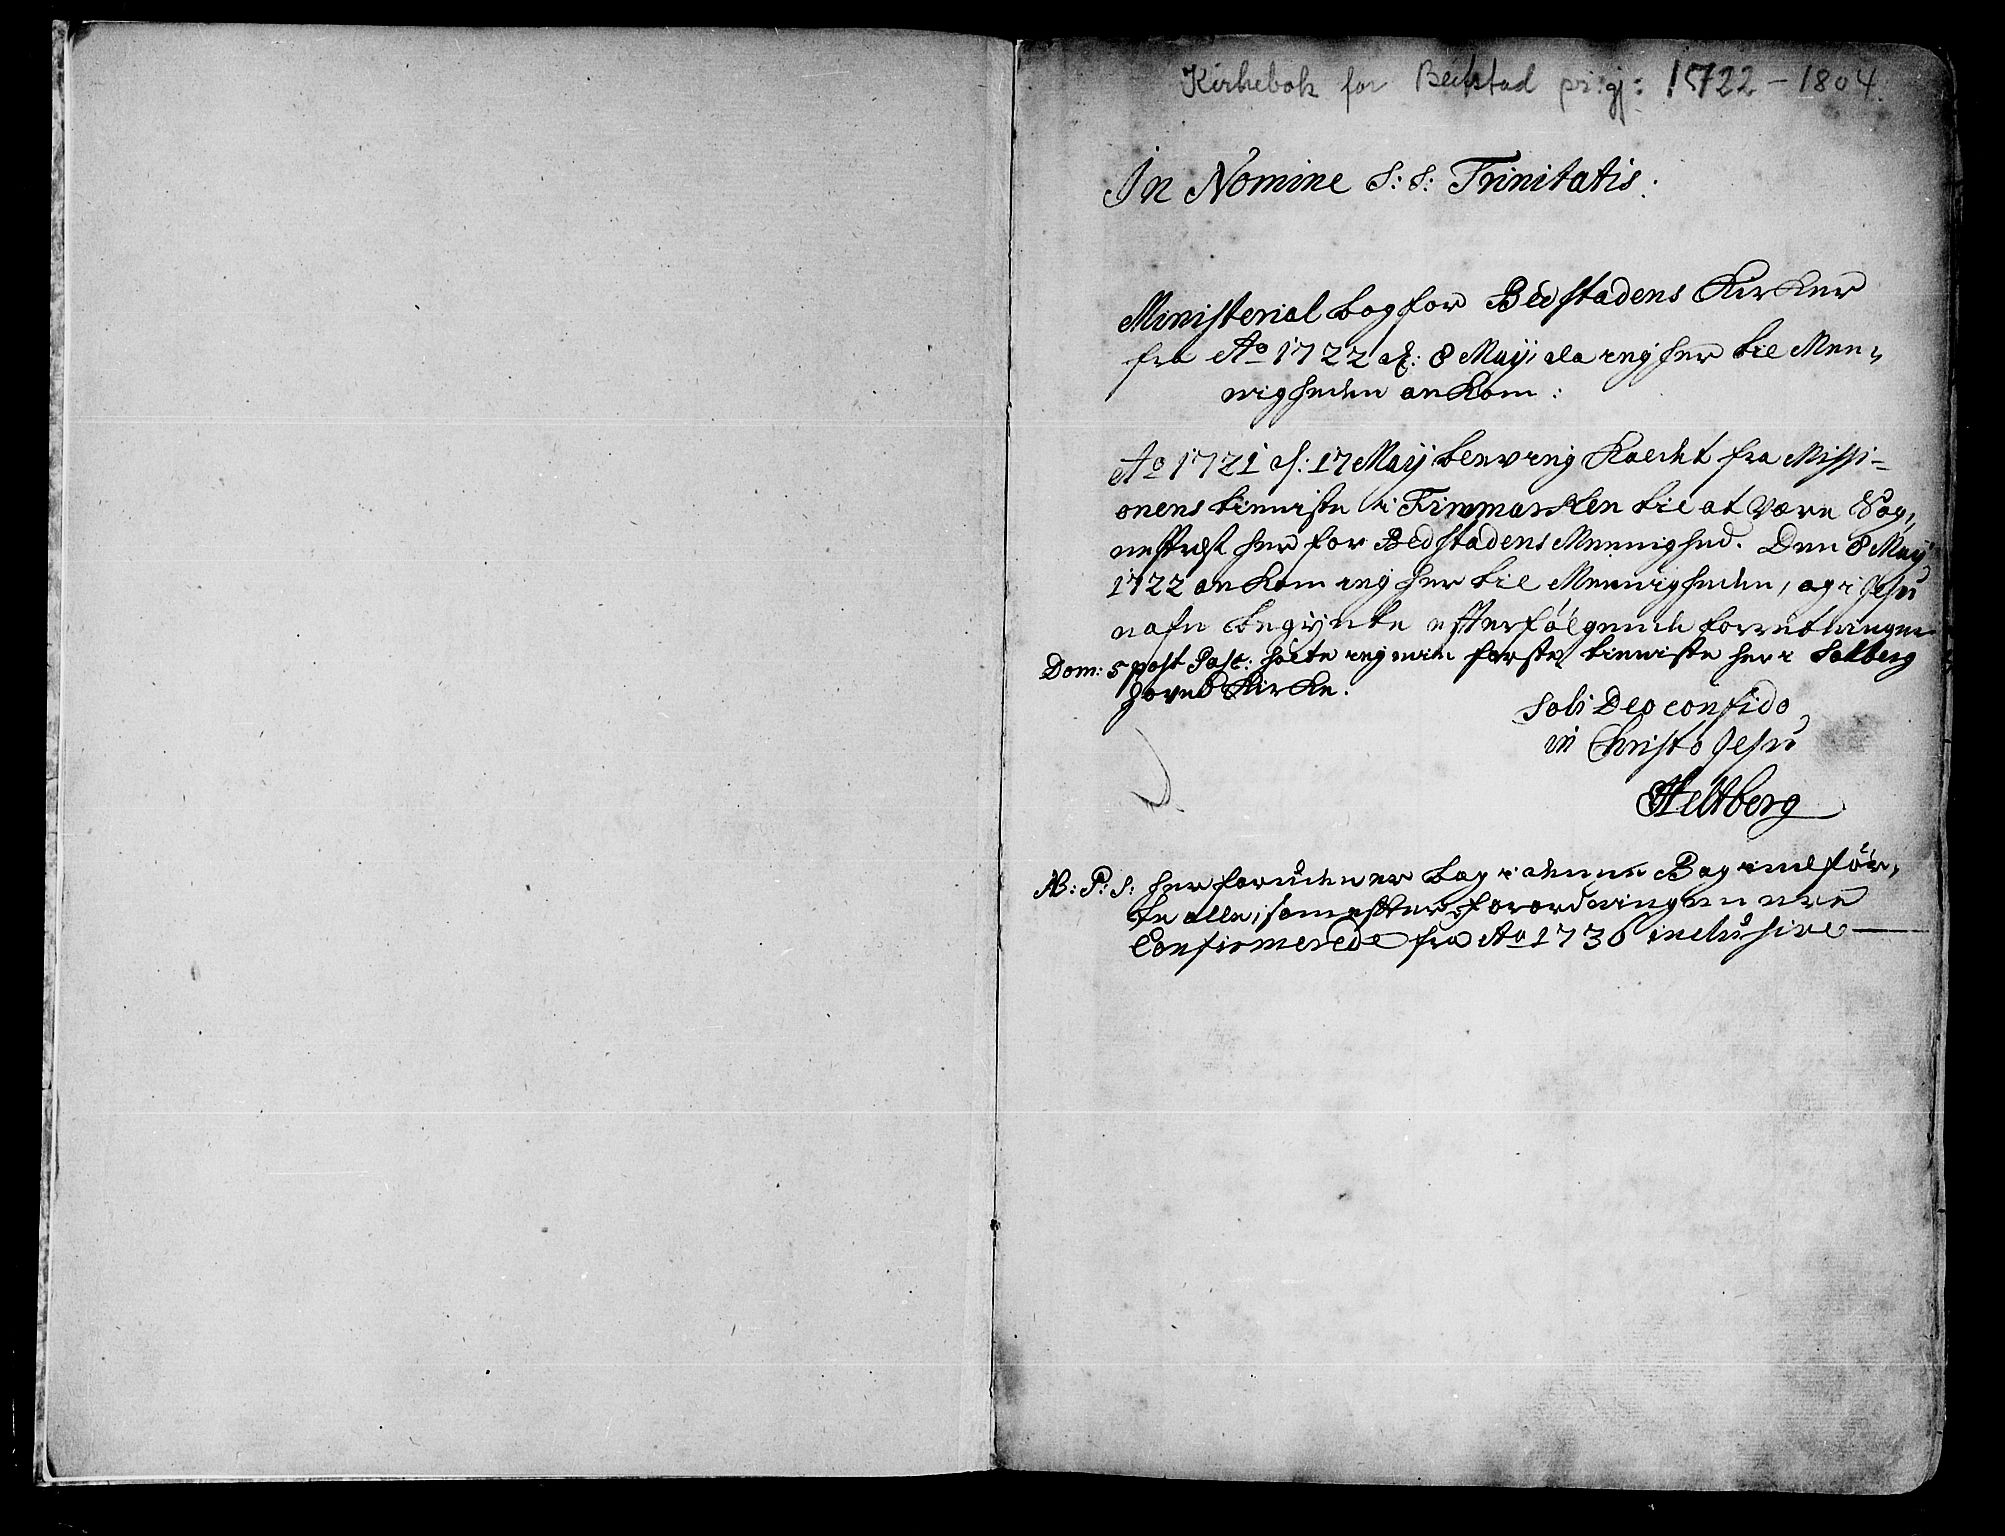 Kirkebok for Beitstad pr:gj: 1722 - 1804.
In Nomine S: S: Trinitatis.
Ministerial bog for Bedstadens Kirker
fra Ao 1722 d: 8 Maij, da ieg her til Men,
nigheden ankom:
Ao 1721 d: 17 Maij blev ieg kaldt fra Missi=
onens tienniste i Finmarken til at være Sog,
nePræst her for Bedstadens Menighed. Den 8 Maij
1722 ankom ieg her til Mennigheden, og i Jesu
nafn begÿnte efterfölgende forretninger
Dom: 5 post Pasc: holte ieg min förste tienniste her i Solberg
Hoved Kirke.
Soli Deo confido
in Christo Jesu
Heltberg
NB: P: S: her foruden er bag i denne Bog indför,
te alle, som efter Forordningen ere
Confirmerede fra Ao 1736 inclusive